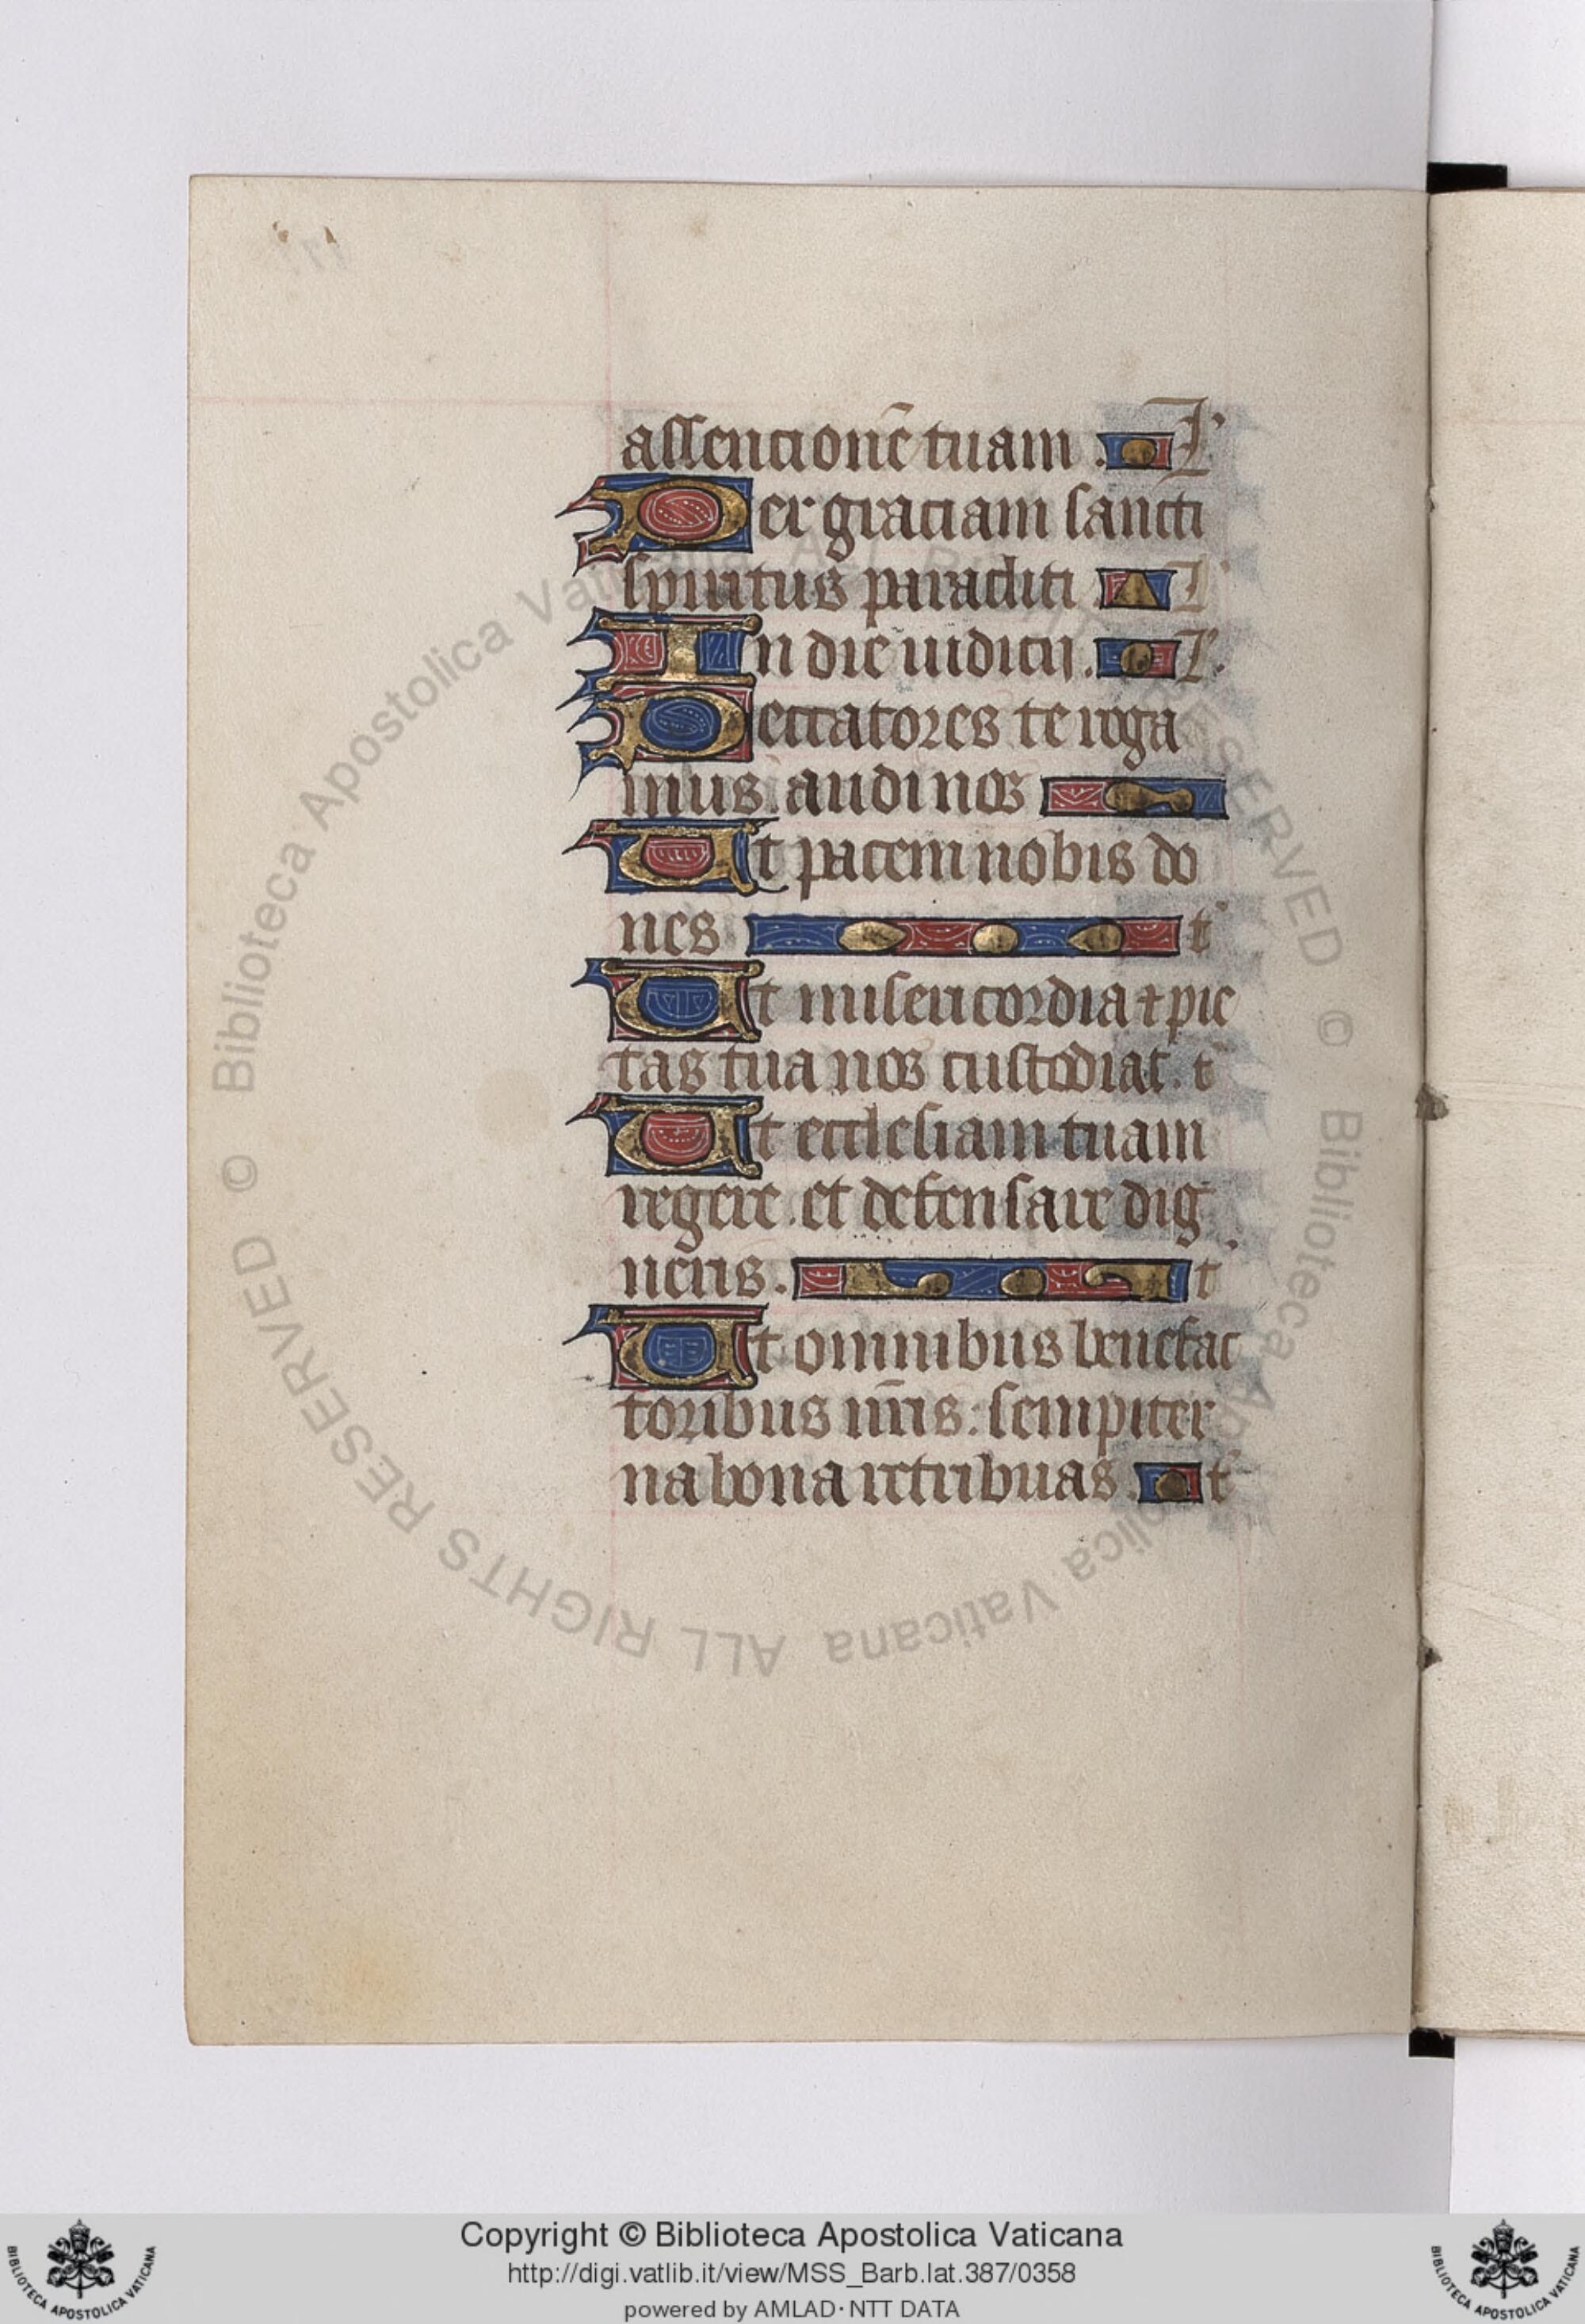 assencionē tuam. L'
Per graciam sancti
spiritus paracliti L'
In die iudicii. L'.
Peccatores te roga
mus. audi nos
Ut pacem nobis do
nes t'
Ut misericordia ⁊ pie
tas tua nos custodiat. t'
Ut ecclesiam tuam
regere. et defensare dig
neris. t'
Ut omnibus benefac
toribus nr̄is: sempiter
na bona retribuas. t'
© Biblioteca Apostolica Vaticana ALL RIGHTS RESERVED © Biblioteca Apostolica Vaticana ALL RIGHTS RESERVED
Copyright © Biblioteca Apostolica Vaticana
http://digi.vatlib.it/view/MSS_Barb.lat.387/0358
powered by AMLAD·NTT DATA
BIBLIOTECA APOSTOLICA VATICANA
BIBLIOTECA APOSTOLICA VATICANA